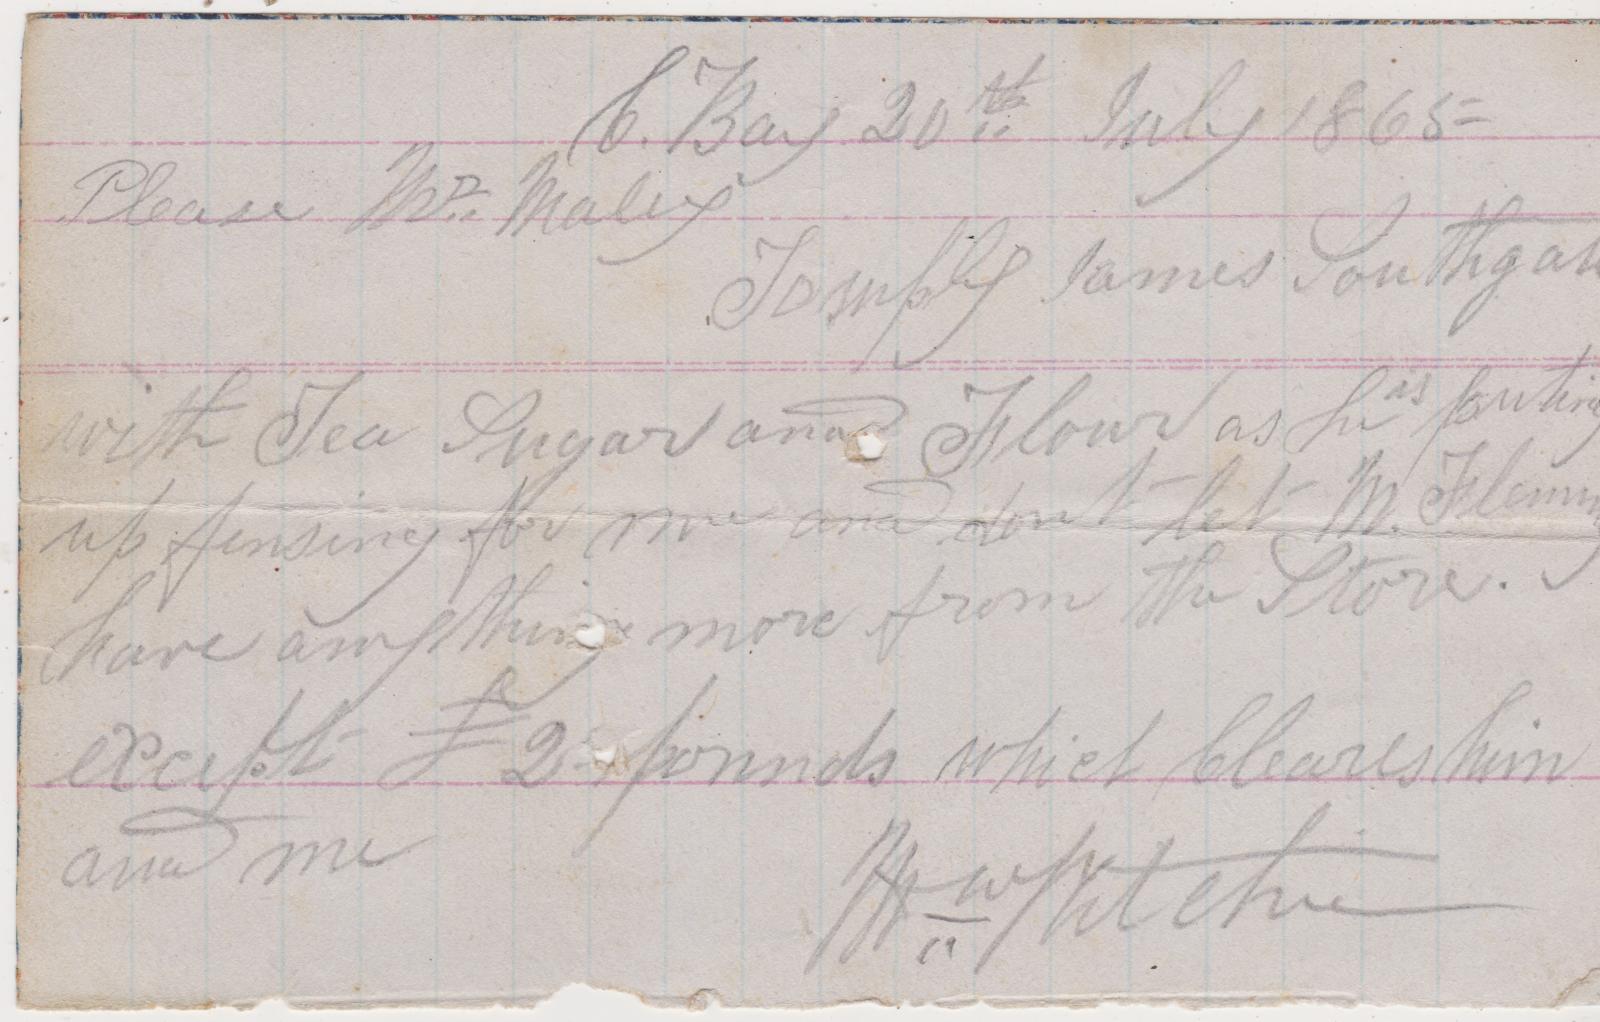 C. Bay 20th July 1865
Please Mr. Maley
To suply James Southgate
with Tea Sugar and Flour as he is puting
up fensing for me and dont let M. Flemming
have anything more from the Store.
except £2- pounds which Cleares him
and me
Wm Ritchie